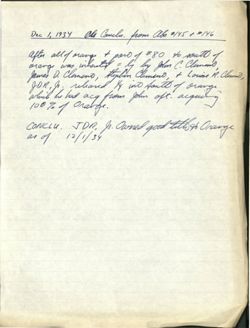 Dec 1, 1934 Abs Conclu. from Abs #145 & #146
After all of orange & part of #80 to south of
orange was inherited = ly by John C. Clemens,
James D. Clemens, Stephen Clemens, & Louise H. Clemens,
JDR, Jr. released ¼ int South of orange
which he had acq from John aft. acquiring
100% of Orange.
Conclu. JDR, Jr. Owned good title to Orange
as of 12/1/34